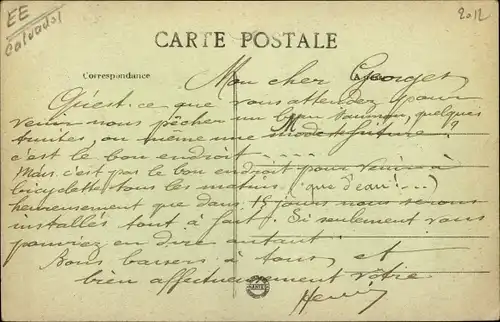 EE
Calvados
2012
CARTE POSTALE
Correspondance
Mon cher Georges,
Qu'est-ce que vous attendez pour
venir nous pêcher un bon saumon, quelques
truites ou même une modeste friture ?
c'est le bon endroit.
Mais c'est pas le bon endroit pour venir à
bicyclette tous les matins (que d'eau!...)
heureusement que dans 15 jours nous serons
installés tout à fait. Si seulement vous
pouviez en dire autant.
Bons baisers à tous, et
bien affectueusement votre
Hervé